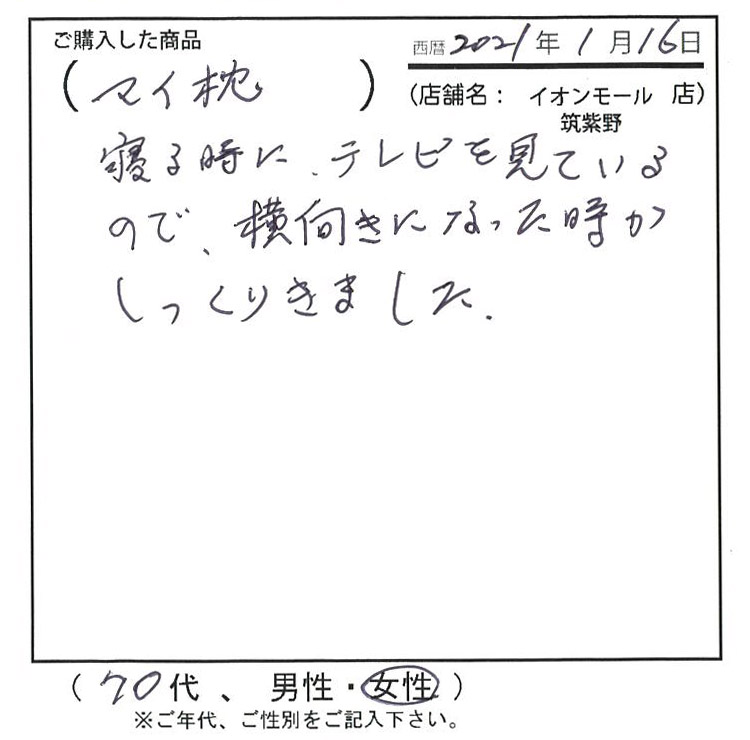 ご購入した商品
西暦2021年1月16日
(マイ枕)
(店舗名： イオンモール 店)
筑紫野
寝る時に、テレビを見ている
ので、横向きになった時が
しっくりきました.
(70代、男性・女性)
※ご年代、ご性別をご記入下さい。